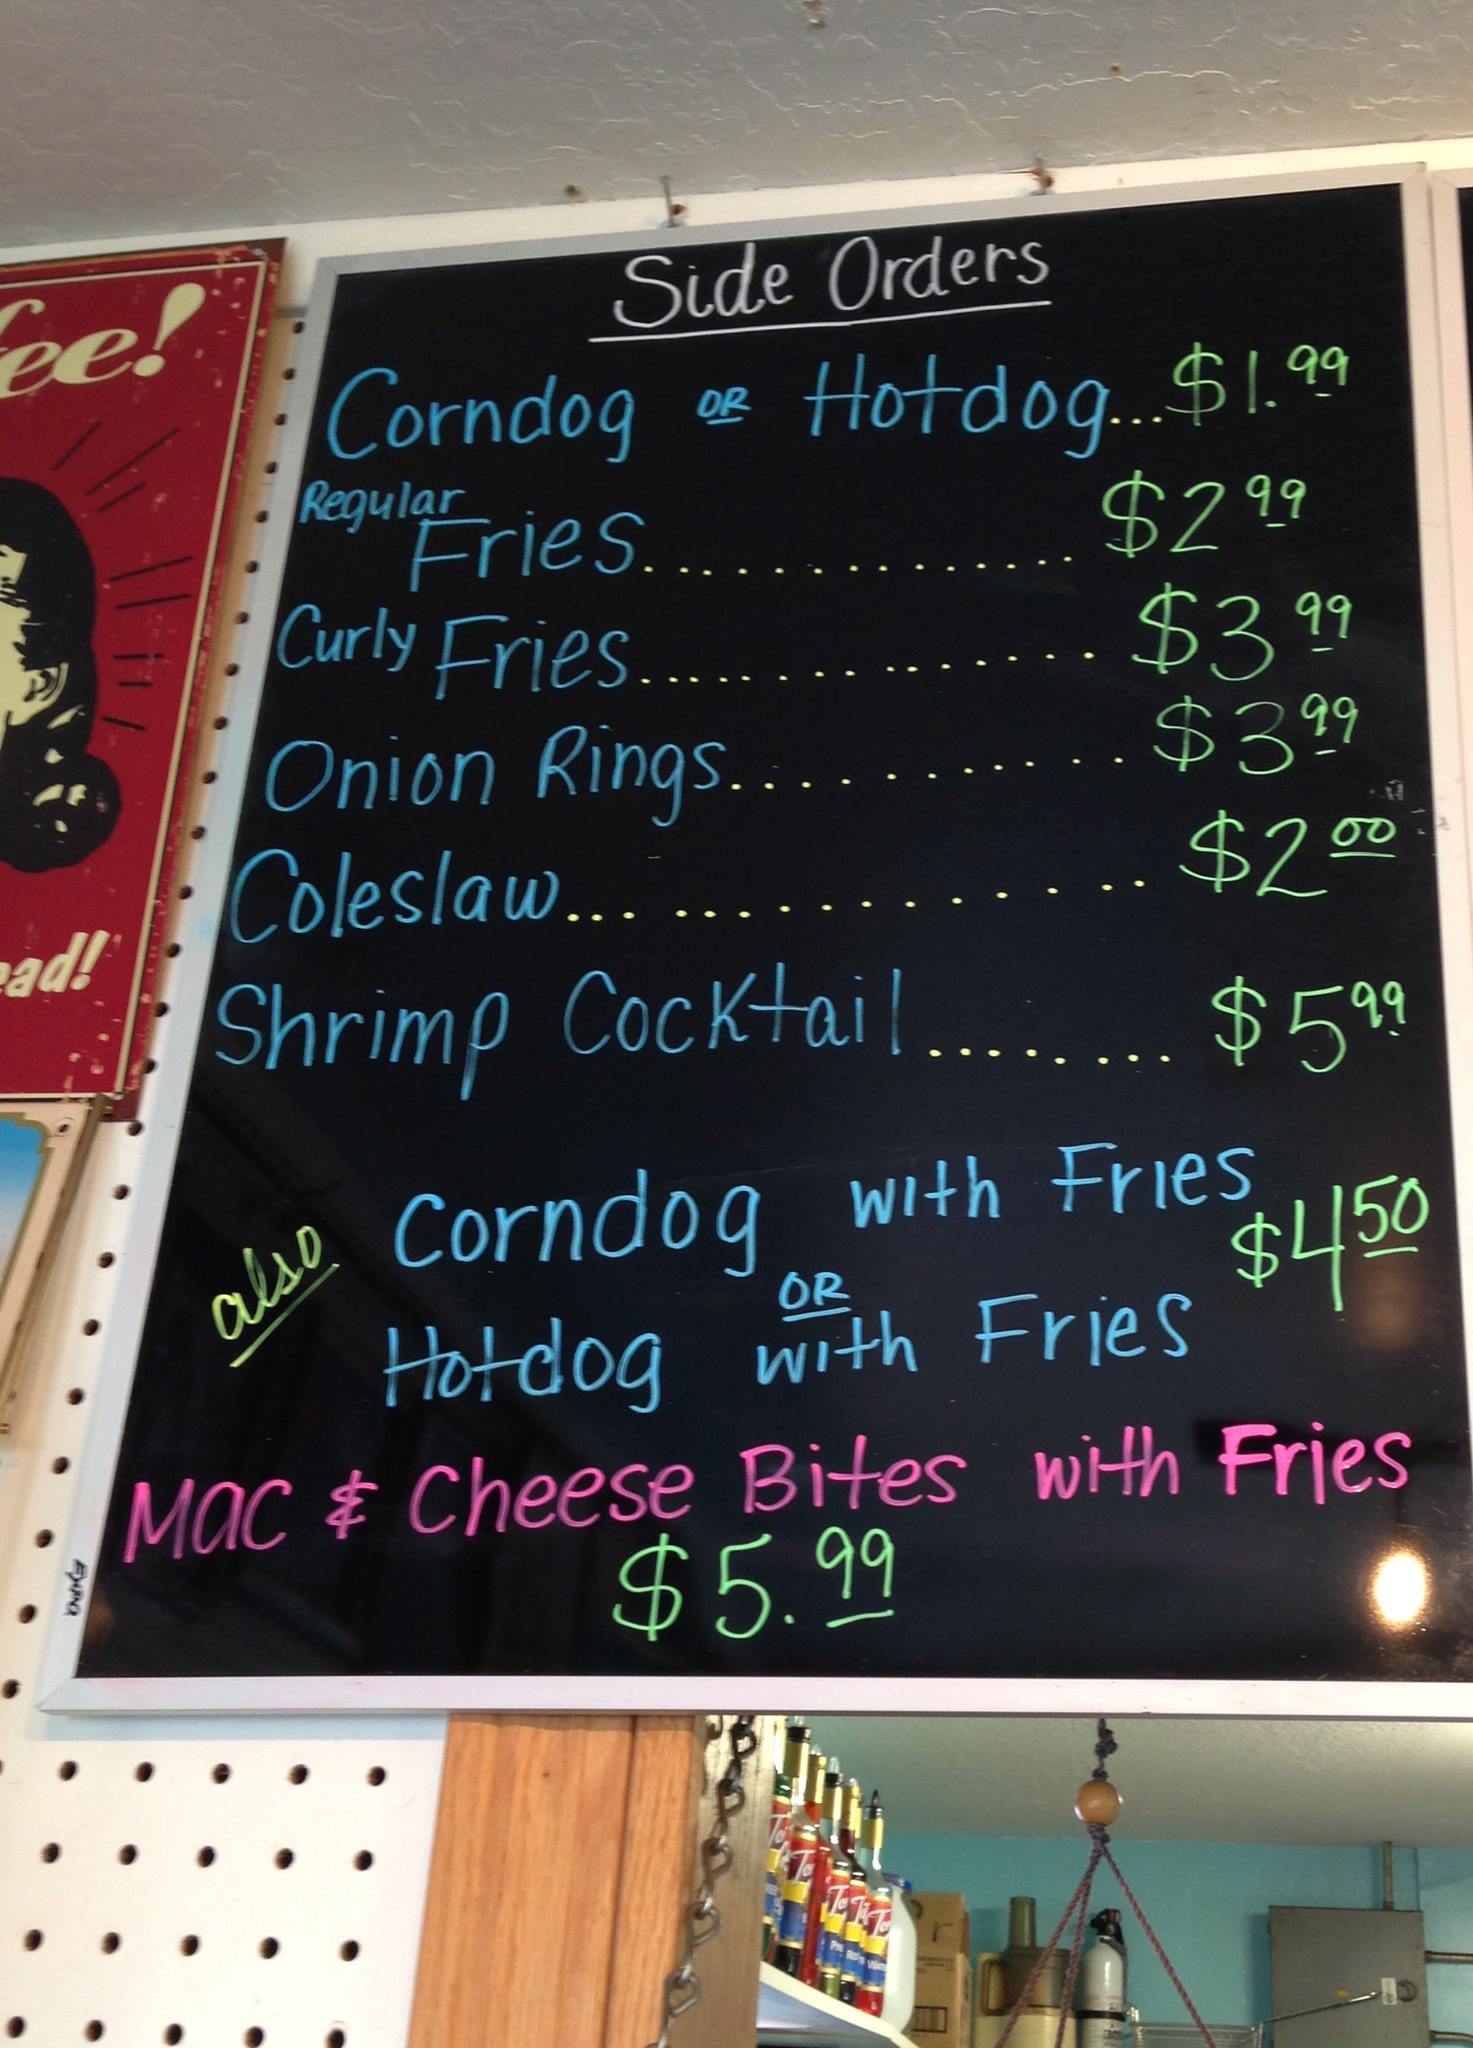 fee!
ead!
Side Orders
Corndog OR Hotdog...$1.99
Regular
Fries.............. $2 99
Curly Fries.............. $3 99
Onion Rings............ $3 99
Coleslaw............. $2 00
Shrimp Cocktail........ $5 99
also
Corndog with Fries
OR
$4 50
Hotdog with Fries
Mac & Cheese Bites with Fries
$5.99
Expo